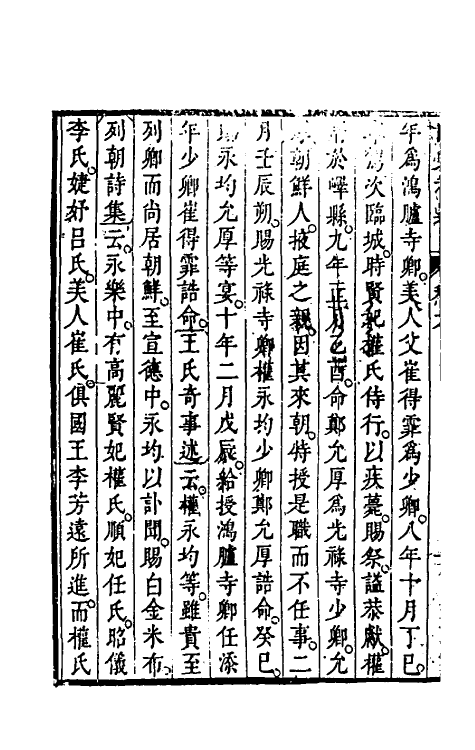 年爲鴻臚寺卿。美人父崔得霏爲少卿。八年十月丁巳。
駕次臨城。時賢妃權氏侍行。以疾薨。賜祭謚恭獻。權
於嶧縣。九年二月己酉。命鄭允厚爲光祿寺少卿。允
朝鮮人。掖庭之親。因其來朝。特授是職而不任事。二
月壬辰朔。賜光祿寺卿權永均少卿鄭允厚誥命。癸巳。
永均允厚等宴。十年二月戊辰。給授鴻臚寺卿任添
年少卿崔得霏誥命。王氏奇事述云。權永均等。雖貴至
列卿而尚居朝鮮。至宣德中。永均以訃聞。賜白金米布。
列朝詩集云。永樂中。有高麗賢妃權氏。順妃任氏。昭儀
李氏。婕妤呂氏。美人崔氏。俱國王李芳遠所進。而權氏